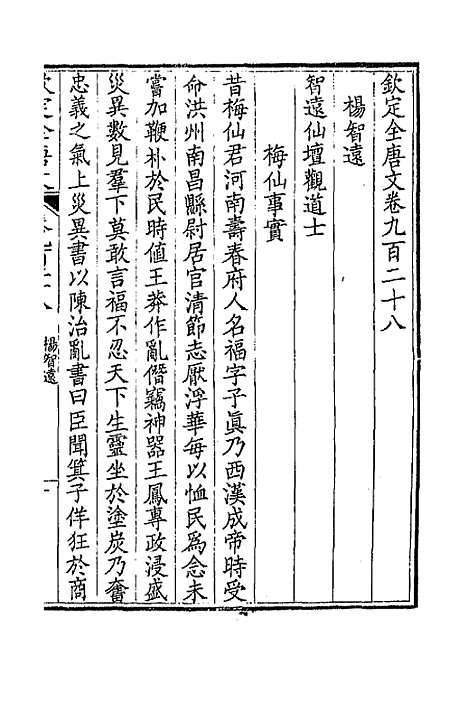 欽定全唐文卷九百二十八
楊智遠
智遠仙壇觀道士
梅仙事實
昔梅仙君河南壽春府人名福字子眞乃西漢成帝時受
命洪州南昌縣尉居官清節志厭浮華每以恤民爲念未
嘗加鞭朴於民時值王莽作亂僭竊神器王鳳專政浸盛
災異數見羣下莫敢言福不忍天下生靈坐於塗炭乃奮
忠義之氣上災異書以陳治亂書曰臣聞箕子佯狂於商
楊智遠